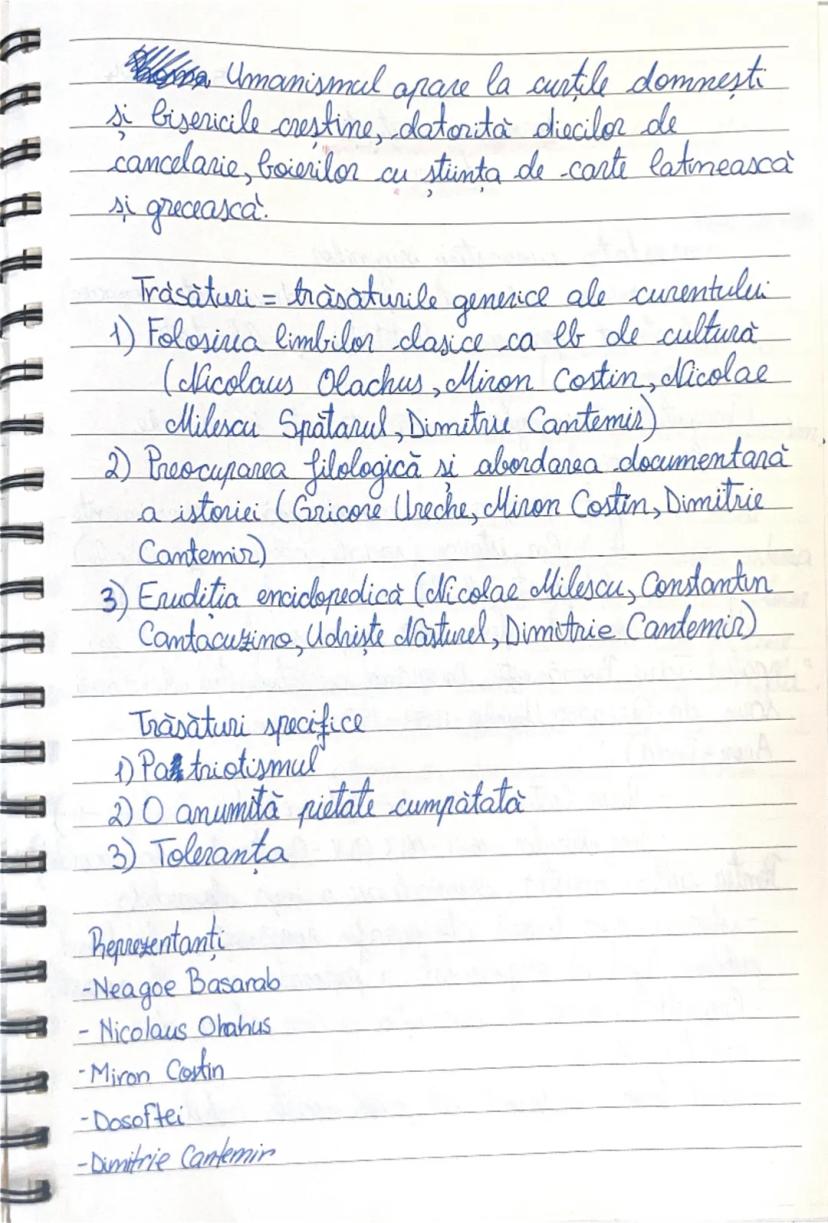 Umanismul apare la curțile domnești
și bisericile creștine, datorită diecilor de
cancelarie, boierilor cu știința de carte latinească
și grecească.
Trăsături = trăsăturile generice ale curentului
1) Folosirea limbilor clasice ca lb de cultură
(Nicolaus Olachus, Miron Costin, Nicolae
Milescu Spătarul, Dimitrie Cantemir)
2) Preocuparea filologică și abordarea documentară
a istoriei (Gricore Ureche, Miron Costin, Dimitrie
Cantemir)
3) Erudiția enciclopedică (Nicolae Milescu, Constantin
Cantacuzino, Udriște Năsturel, Dimitrie Cantemir)
Trăsături specifice
1) Patriotismul
2) O anumită pietate cumpătată
3) Toleranța
Reprezentanți
-Neagoe Basarab
- Nicolaus Ohahus
-Miron Costin
-Dosoftei
-Dimitrie Cantemir